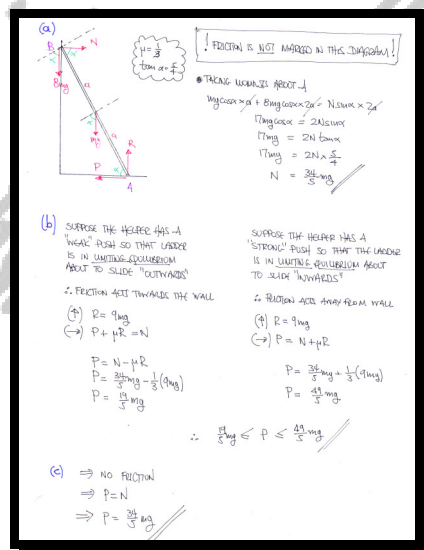 (a)
B
N
α
α
8mg
a
α
mg
a
R
P
α
A
μ = 1/3
tan α = 5/4
! FRICTION IS NOT MARKED IN THIS DIAGRAM !
● TAKING MOMENTS ABOUT A
mgcosα × a + 8mgcosα × 2a = Nsinα × 2a
17mgcosα = 2Nsinα
17mg = 2N tanα
17mg = 2N × 5/4
N = 34/5 mg
(b)
SUPPOSE THE HELPER HAS A
"WEAK" PUSH SO THAT LADDER
IS IN LIMITING EQUILIBRIUM
ABOUT TO SLIDE "OUTWARDS"
∴ FRICTION ACTS TOWARDS THE WALL
(↑) R = 9mg
(→) P + μR = N
P = N - μR
P = 34/5 mg - 1/3 (9mg)
P = 19/5 mg
SUPPOSE THE HELPER HAS A
"STRONG" PUSH SO THAT THE LADDER
IS IN LIMITING EQUILIBRIUM ABOUT
TO SLIDE "INWARDS"
∴ FRICTION ACTS AWAY FROM WALL
(↑) R = 9mg
(→) P = N + μR
P = 34/5 mg + 1/3 (9mg)
P = 49/5 mg
∴ 19/5 mg ≤ P ≤ 49/5 mg
(c)
⇒ NO FRICTION
⇒ P = N
⇒ P = 34/5 mg